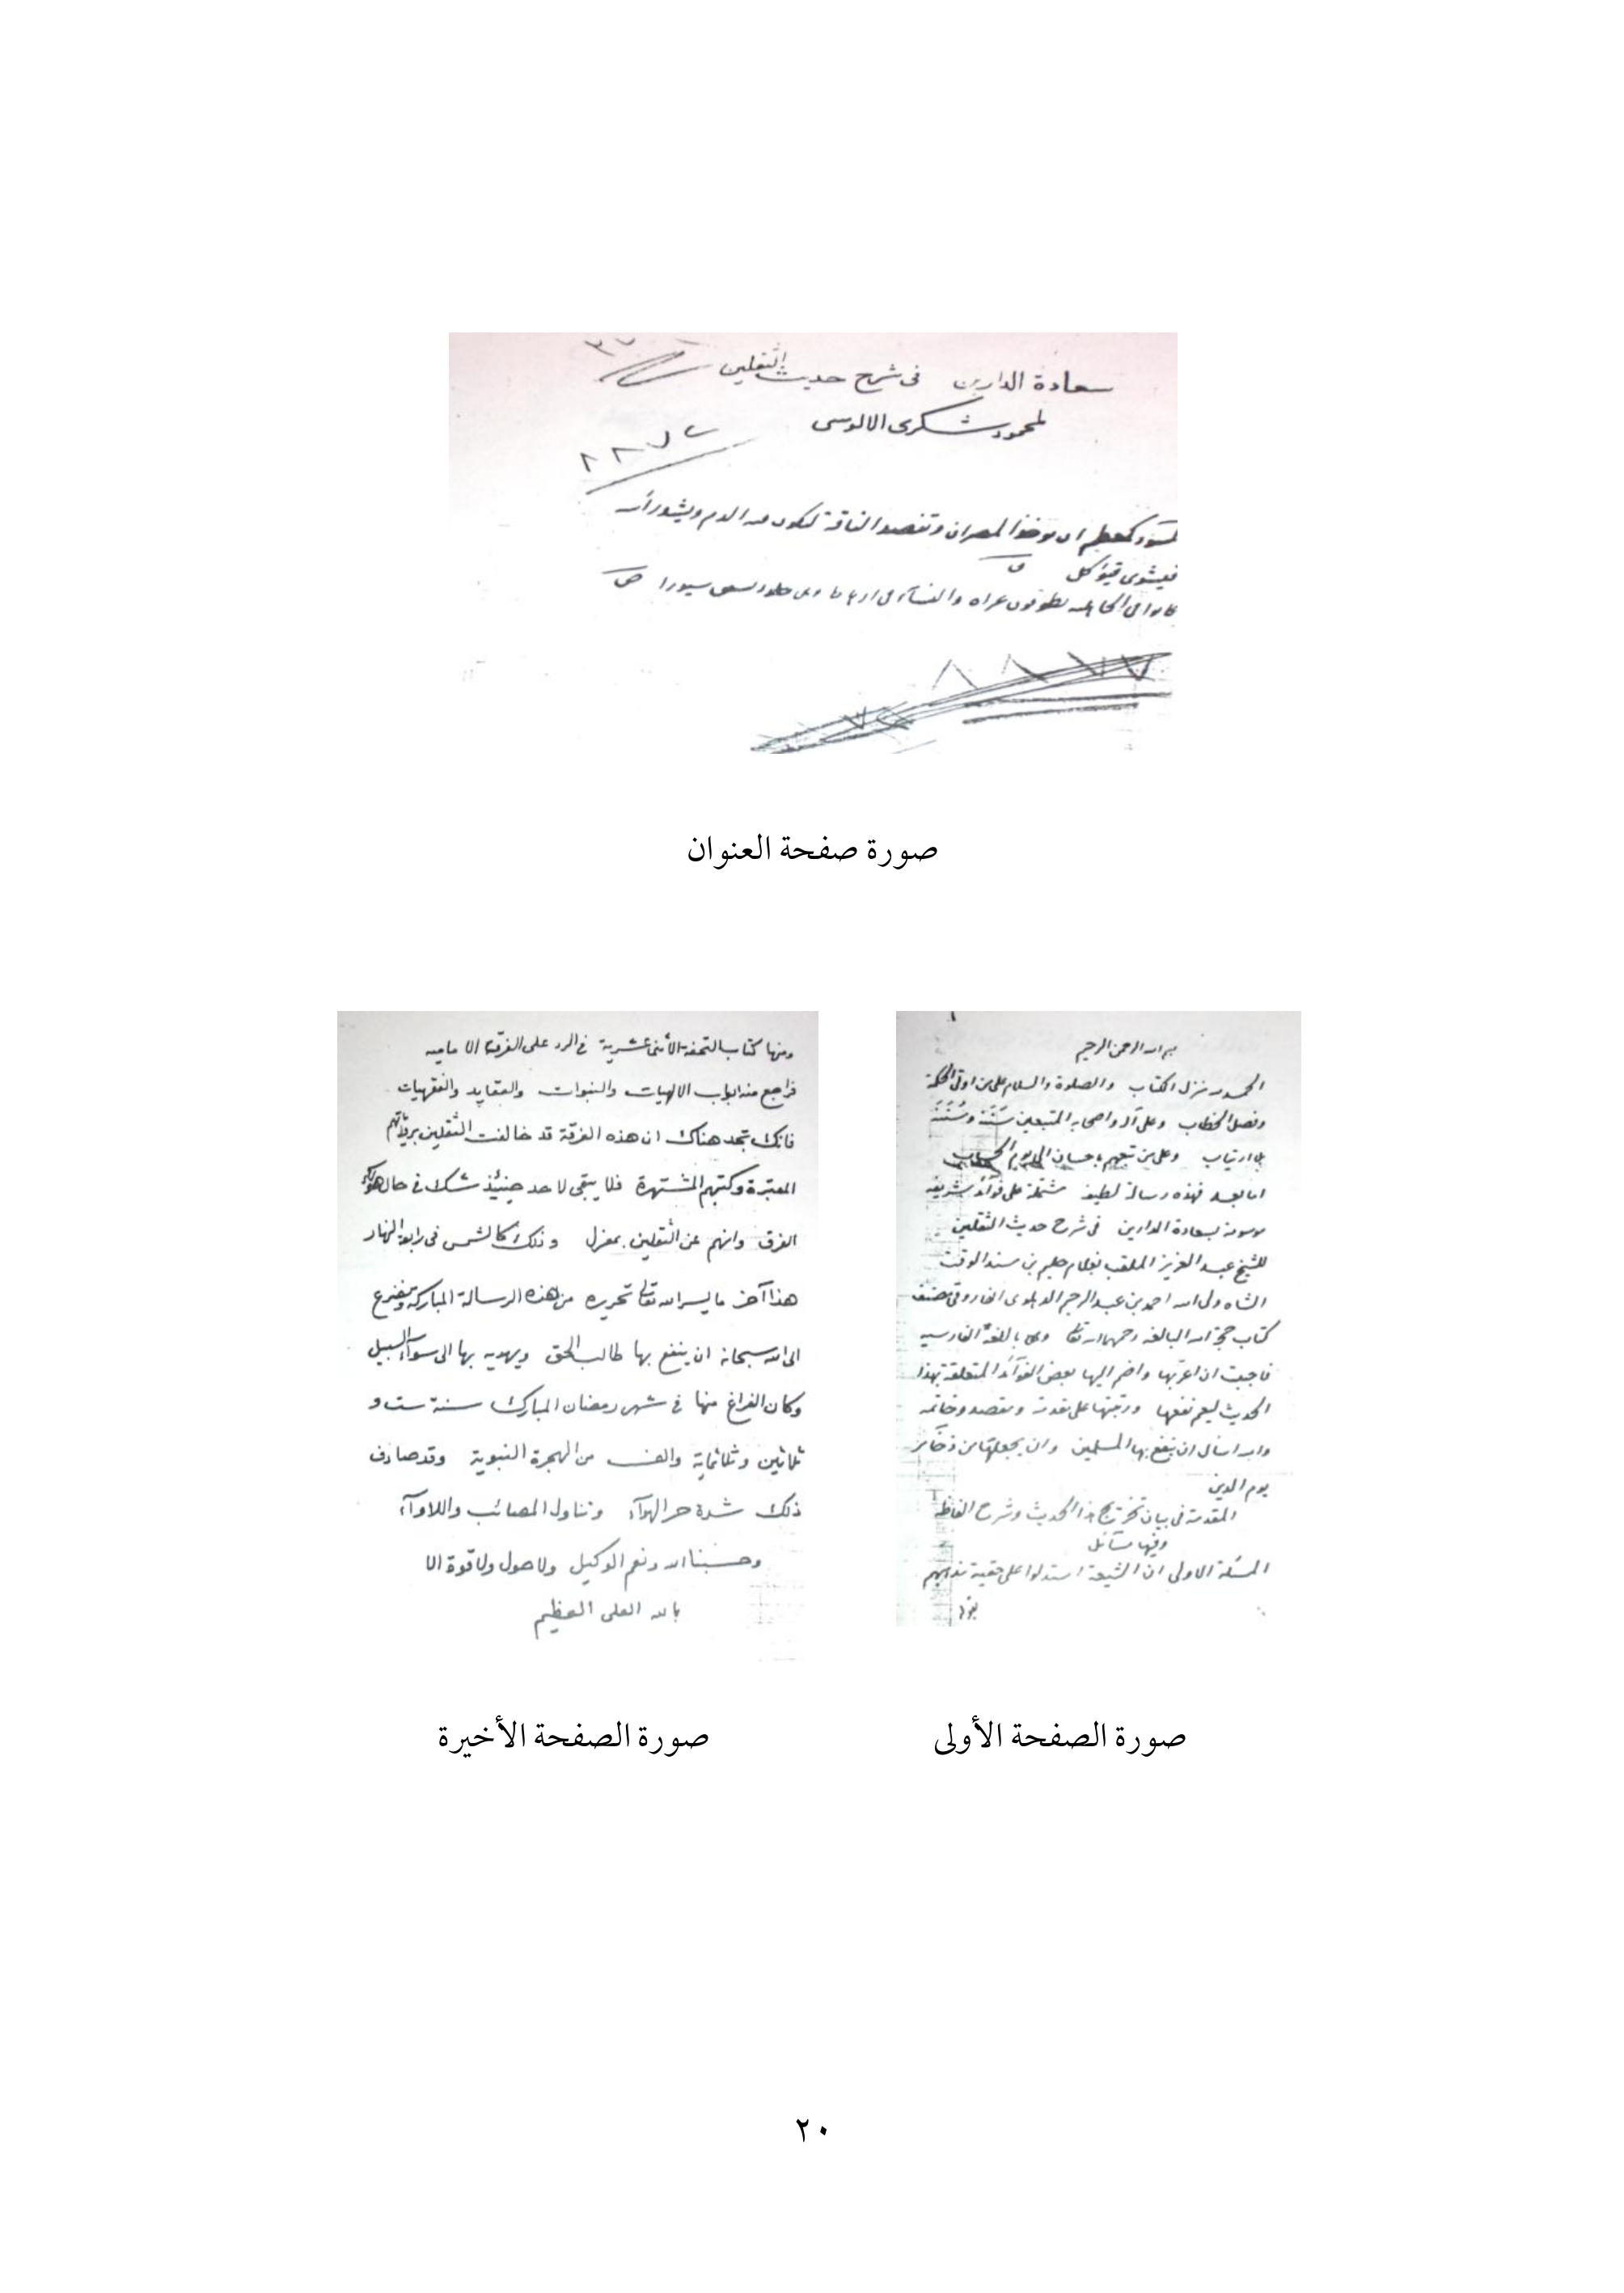 سعادة الدارين فى شرح حديث الثقلين
لمحمود شكرى الالوسى
وتفصد الناقة
فيشوى فيؤكل
صورة صفحة العنوان
بسم الله الرحمن الرحيم
الحمد لله منزل الكتاب والصلوة والسلام على من اوتى الحكمة
وفصل الخطاب وعلى آله واصحابه المتبعين سننه وسنته
بلا ارتياب وعلى من تبعهم باحسان الى يوم الحساب
اما بعد فهذه رسالة لطيفة مشتملة على فوآئد شريفة
موسومة بسعادة الدارين فى شرح حديث الثقلين
للشيخ عبد العزيز الملقب بغلام حليم بن سند الوقت
الشاه ولى الله احمد بن عبد الرحيم الدهلوى الفاروقى مصنف
كتاب حجة الله البالغة رحمهما الله تعالى وهى باللغة الفارسيه
فاحببت ان اعربها واضم اليها بعض الفوآئد المتعلقة بهذا
الحديث ليعم نفعها ورتبتها على مقدمة ومقصد وخاتمه
والله اسال ان ينفع بها المسلمين وان يجعلها من ذخآئر
يوم الدين
المقدمة فى بيان تخريج هذا الحديث وشرح الفاظه
وفيها مسآئل
المسئلة الاولى ان الشيعة استدلوا على حقية مذهبهم
صورة الصفحة الأولى
ومنها كتاب التحفة الأثنى عشرية فى الرد على الفرقة الا ماميه
فراجع منه ابواب الالهيات والنبوات والعقايد والفقهيات
فانك تجد هناك ان هذه الفرقة قد خالفت الثقلين برواياتهم
المعتبرة وكتبهم المشتهرة فلا يبقى لاحد حينئذ شك فى حال هؤلآء
الفرق وانهم عن الثقلين بمعزل وذلك كالشمس فى رابعة النهار
هذا آخر ما يسر الله تعالى تحريره من هذه الرسالة المباركة ونتضرع
الى الله سبحانه ان ينفع بها طالب الحق ويهديه بها الى سوآء السبيل
وكان الفراغ منها فى شهر رمضان المبارك سنة ست و
ثلاثين وثلاثمائة والف من الهجرة النبوية وقد صادف
ذلك شدة حر الهوآء وتناول المصائب واللاوآء
وحسبنا الله ونعم الوكيل ولا حول ولا قوة الا
بالله العلى العظيم
صورة الصفحة الأخيرة
٢٠